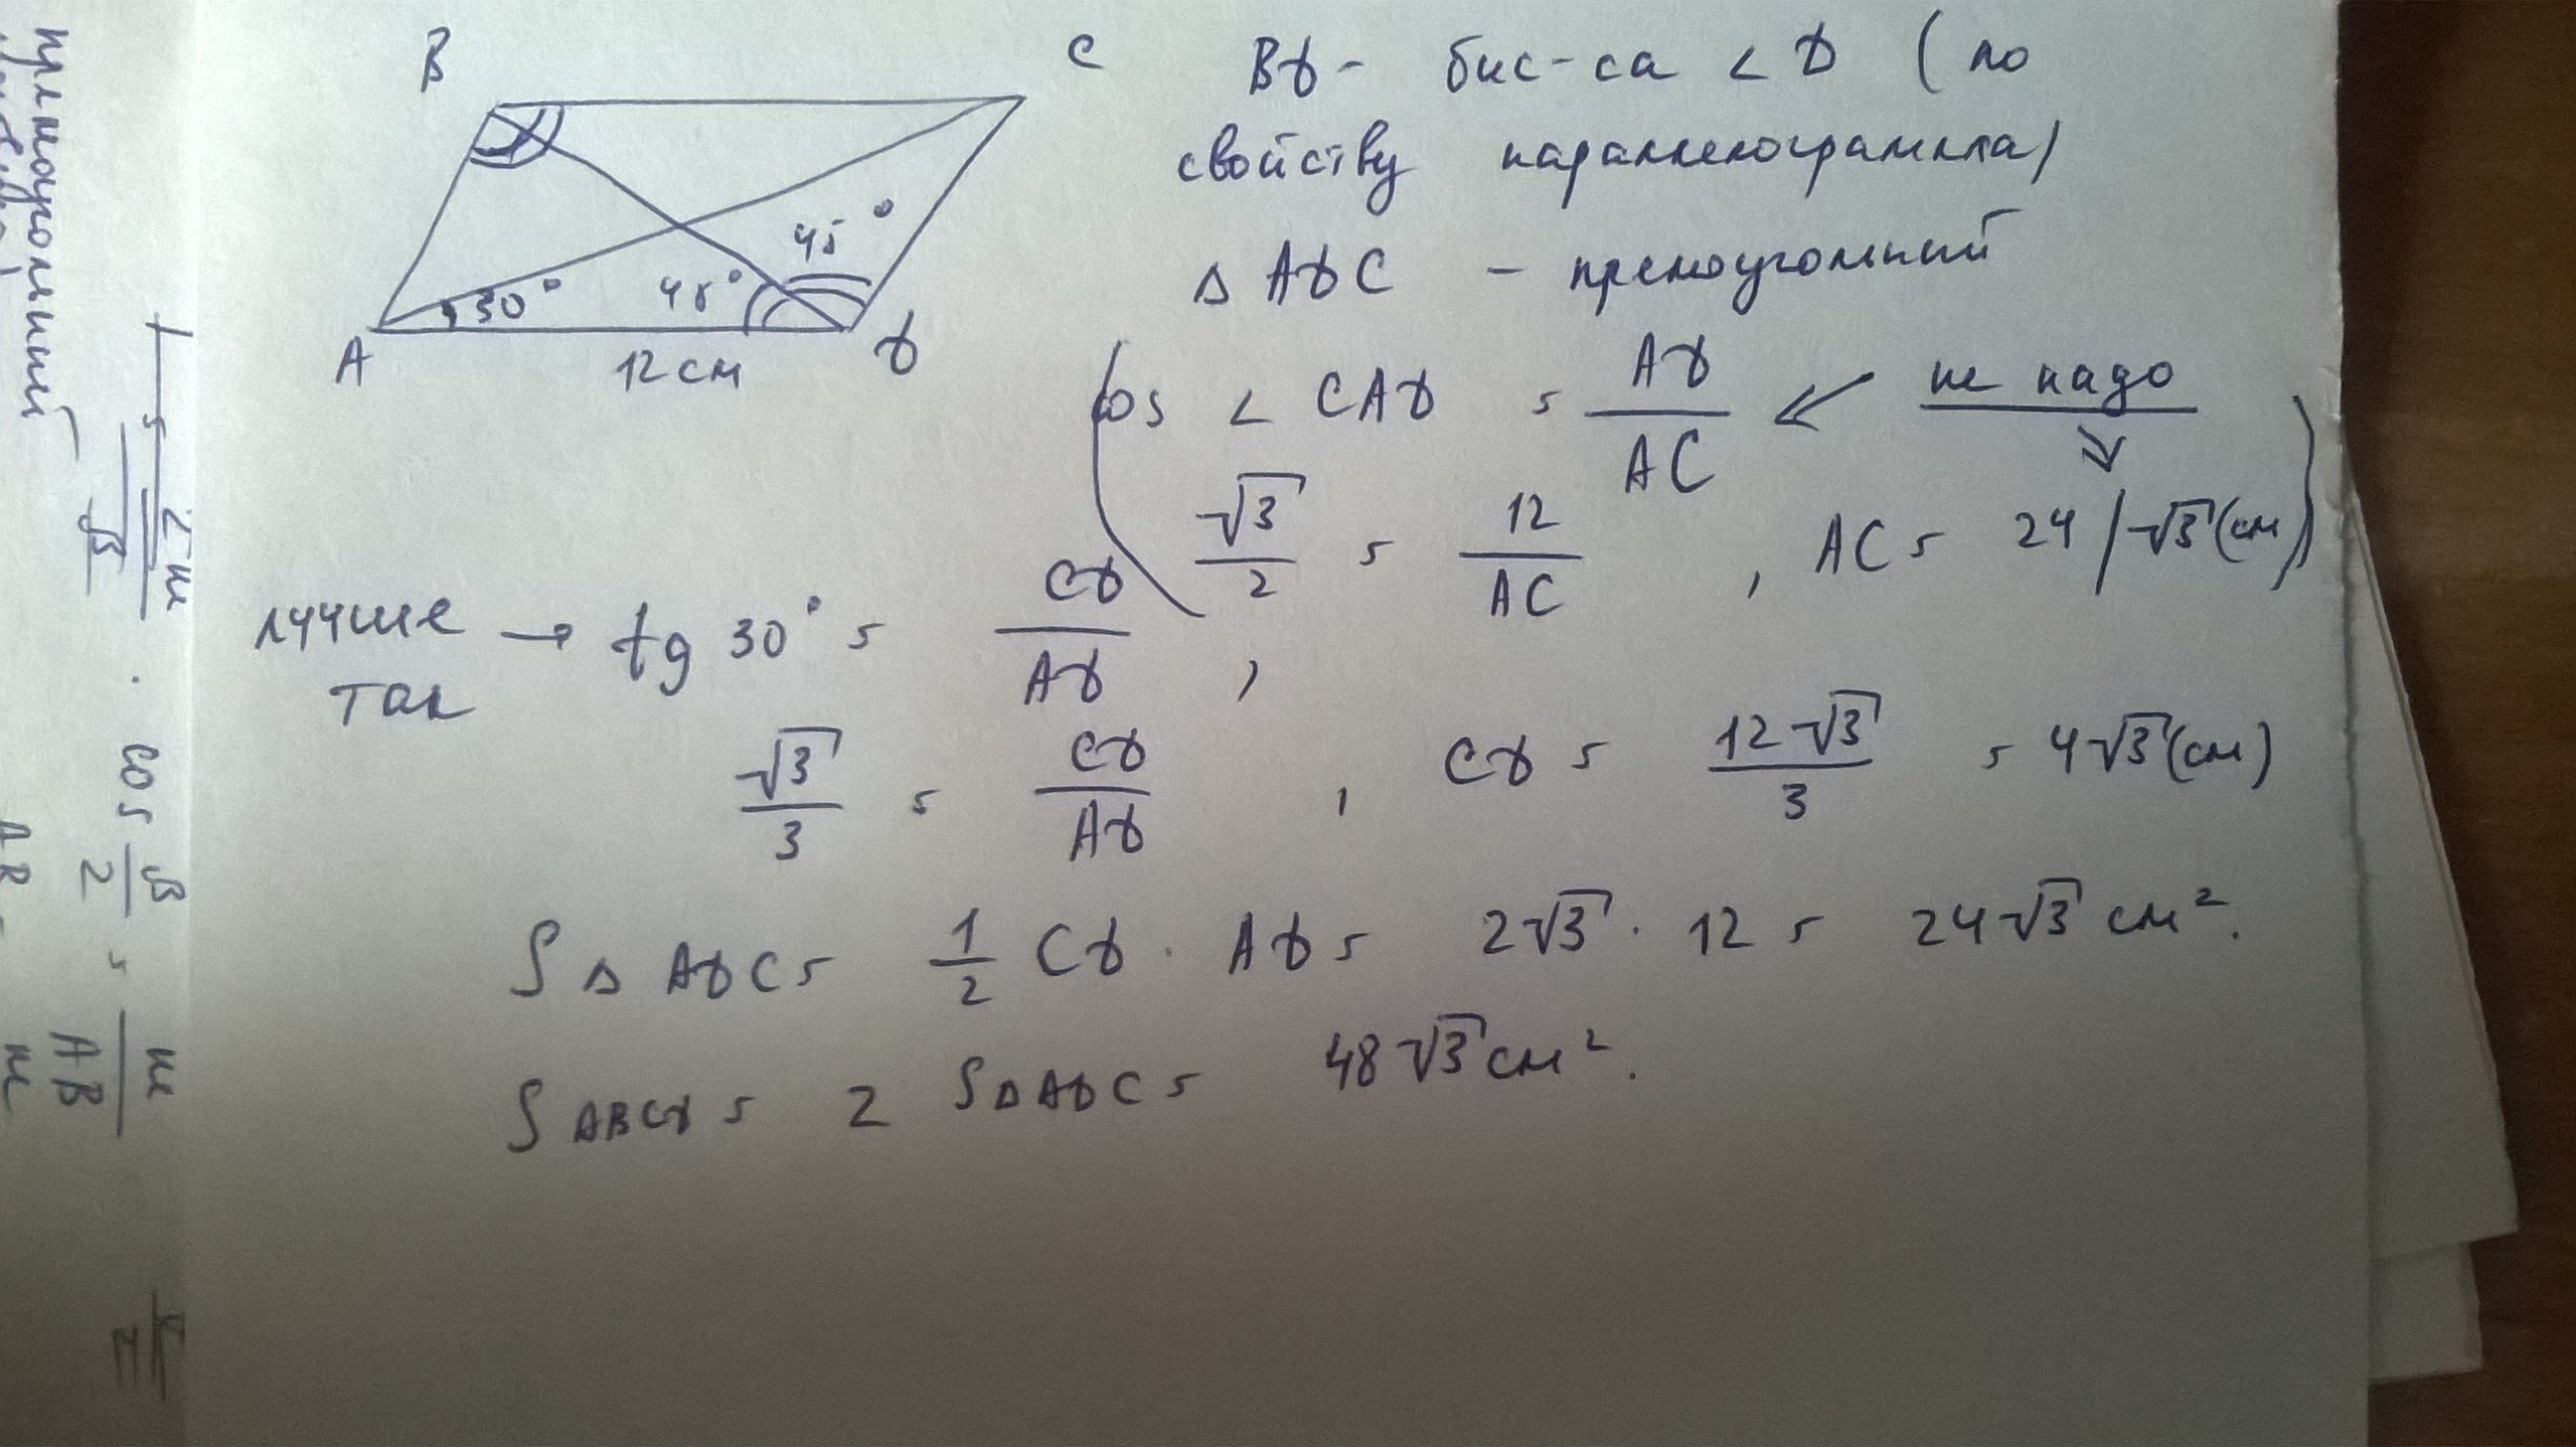 B
C
45°
30°
48°
A
12 см
D
BD - бис-са < D (по
свойству параллелограмма)
△ ADC - прямоугольный
cos < CAD = AD / AC
не надо
√3 / 2 = 12 / AC , AC = 24 / √3 (см)
лучше так → tg 30° = CD / AD ,
√3 / 3 = CD / AD , CD = 12√3 / 3 = 4√3 (см)
S △ ADC = 1/2 CD · AD = 2√3 · 12 = 24√3 см².
S ABCD = 2 S △ ADC = 48√3 см².
прямоугольный
cos
√3 / 2
AB